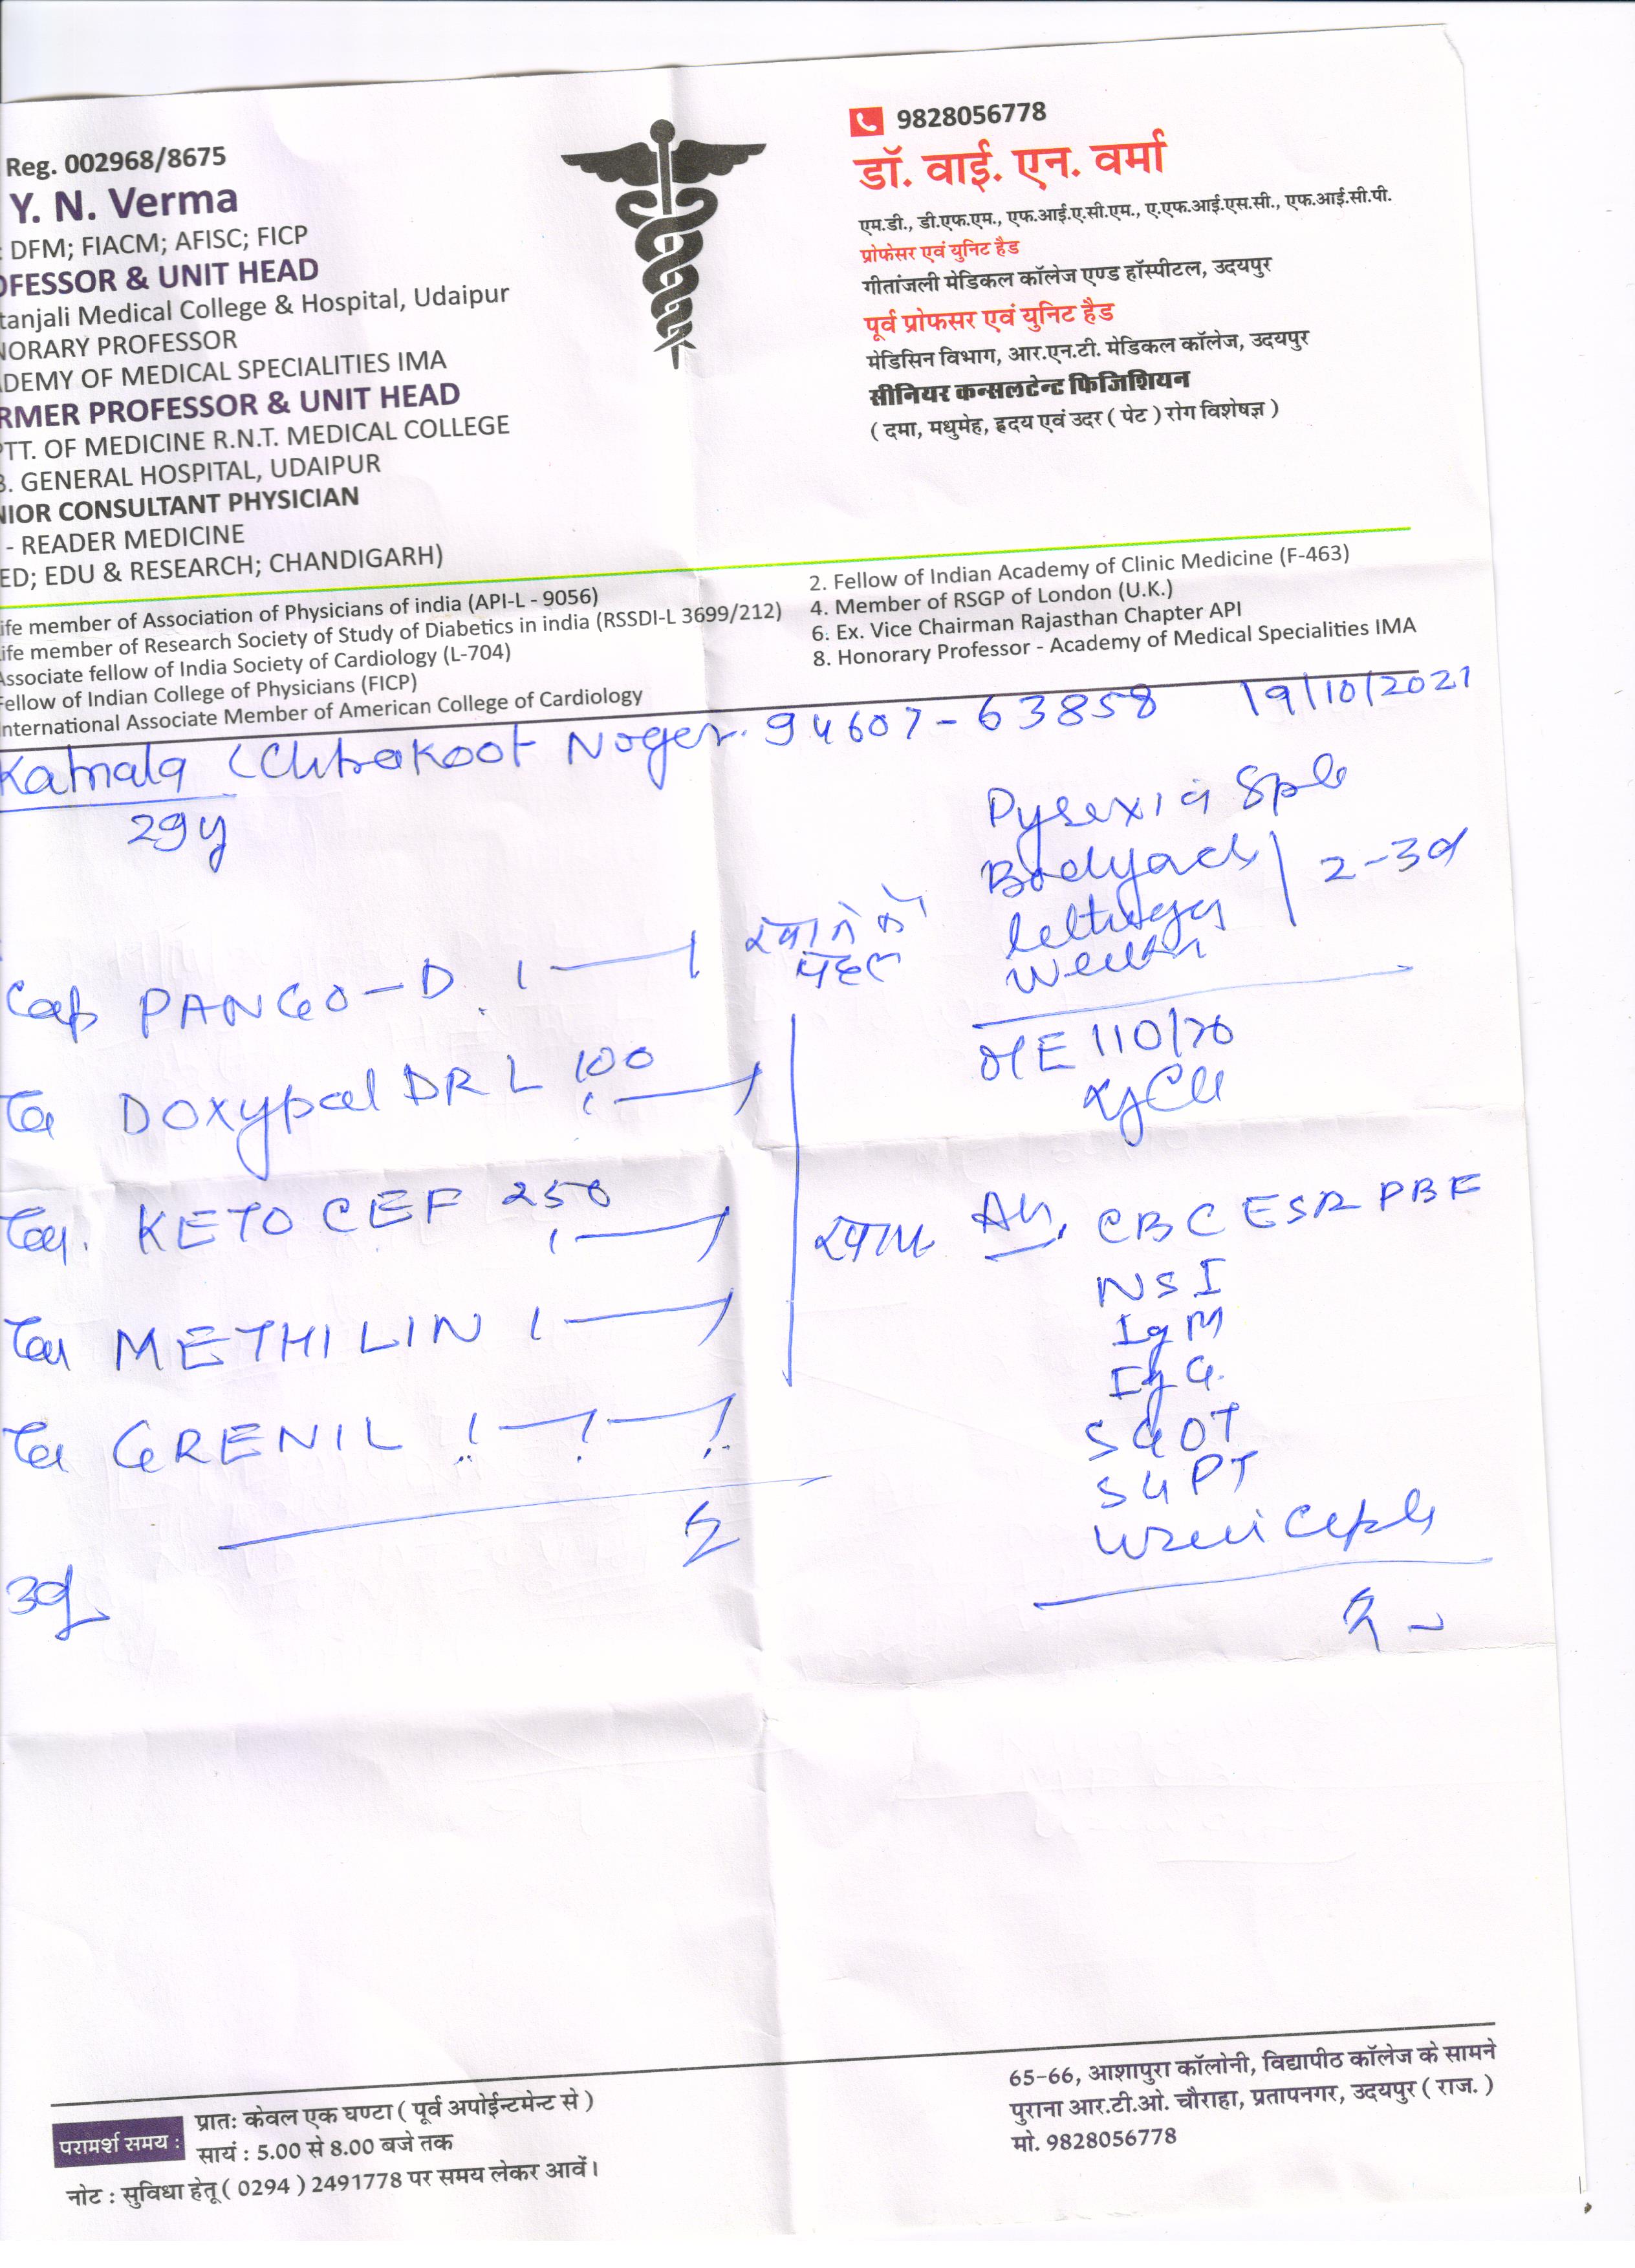 Reg. 002968/8675
Y. N. Verma
: DFM; FIACM; AFISC; FICP
OFESSOR & UNIT HEAD
tanjali Medical College & Hospital, Udaipur
NORARY PROFESSOR
DEMY OF MEDICAL SPECIALITIES IMA
RMER PROFESSOR & UNIT HEAD
PTT. OF MEDICINE R.N.T. MEDICAL COLLEGE
B. GENERAL HOSPITAL, UDAIPUR
NIOR CONSULTANT PHYSICIAN
- READER MEDICINE
ED; EDU & RESEARCH; CHANDIGARH)
9828056778
डॉ. वाई. एन. वर्मा
एम.डी., डी.एफ.एम., एफ.आई.ए.सी.एम., ए.एफ.आई.एस.सी., एफ.आई.सी.पी.
प्रोफेसर एवं युनिट हैड
गीतांजली मेडिकल कॉलेज एण्ड हॉस्पीटल, उदयपुर
पूर्व प्रोफसर एवं युनिट हैड
मेडिसिन विभाग, आर.एन.टी. मेडिकल कॉलेज, उदयपुर
सीनियर कन्सलटेन्ट फिजिशियन
( दमा, मधुमेह, ह्रदय एवं उदर ( पेट ) रोग विशेषज्ञ )
ife member of Association of Physicians of india (API-L - 9056)
ife member of Research Society of Study of Diabetics in india (RSSDI-L 3699/212)
Associate fellow of India Society of Cardiology (L-704)
Fellow of Indian College of Physicians (FICP)
nternational Associate Member of American College of Cardiology
2. Fellow of Indian Academy of Clinic Medicine (F-463)
4. Member of RSGP of London (U.K.)
6. Ex. Vice Chairman Rajasthan Chapter API
8. Honorary Professor - Academy of Medical Specialities IMA
Kamala (Chitrakoot Nager. 94607-63858 19/10/2021
29y
Cap PANGO-D 1 — 1 खाने के
पहले
DOxypal DR L 100
1 — 1
KETO CEF 250
1 — 1 खाना
METHILIN 1 — 1
GRENIL 1 — 1 — 1
3d
Pyrexia
Bodyach 2-3d
O/E 110/70
CBC ESR PBF
NSI
IgM
IgG.
SGOT
SGPT
परामर्श समय :
प्रातः केवल एक घण्टा ( पूर्व अपोईन्टमेन्ट से )
सायं : 5.00 से 8.00 बजे तक
नोट : सुविधा हेतू ( 0294 ) 2491778 पर समय लेकर आवें।
65-66, आशापुरा कॉलोनी, विद्यापीठ कॉलेज के सामने
पुराना आर.टी.ओ. चौराहा, प्रतापनगर, उदयपुर ( राज. )
मो. 9828056778